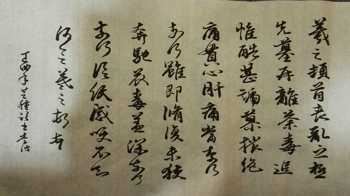 羲之頓首喪亂之極
先墓再離荼毒追
惟酷甚號慕摧絕
痛貫心肝痛當奈何
奈何雖即脩復未獲
奔馳哀毒益深奈何
奈何臨紙感哽不知
何言羲之頓首
丁酉年芒種